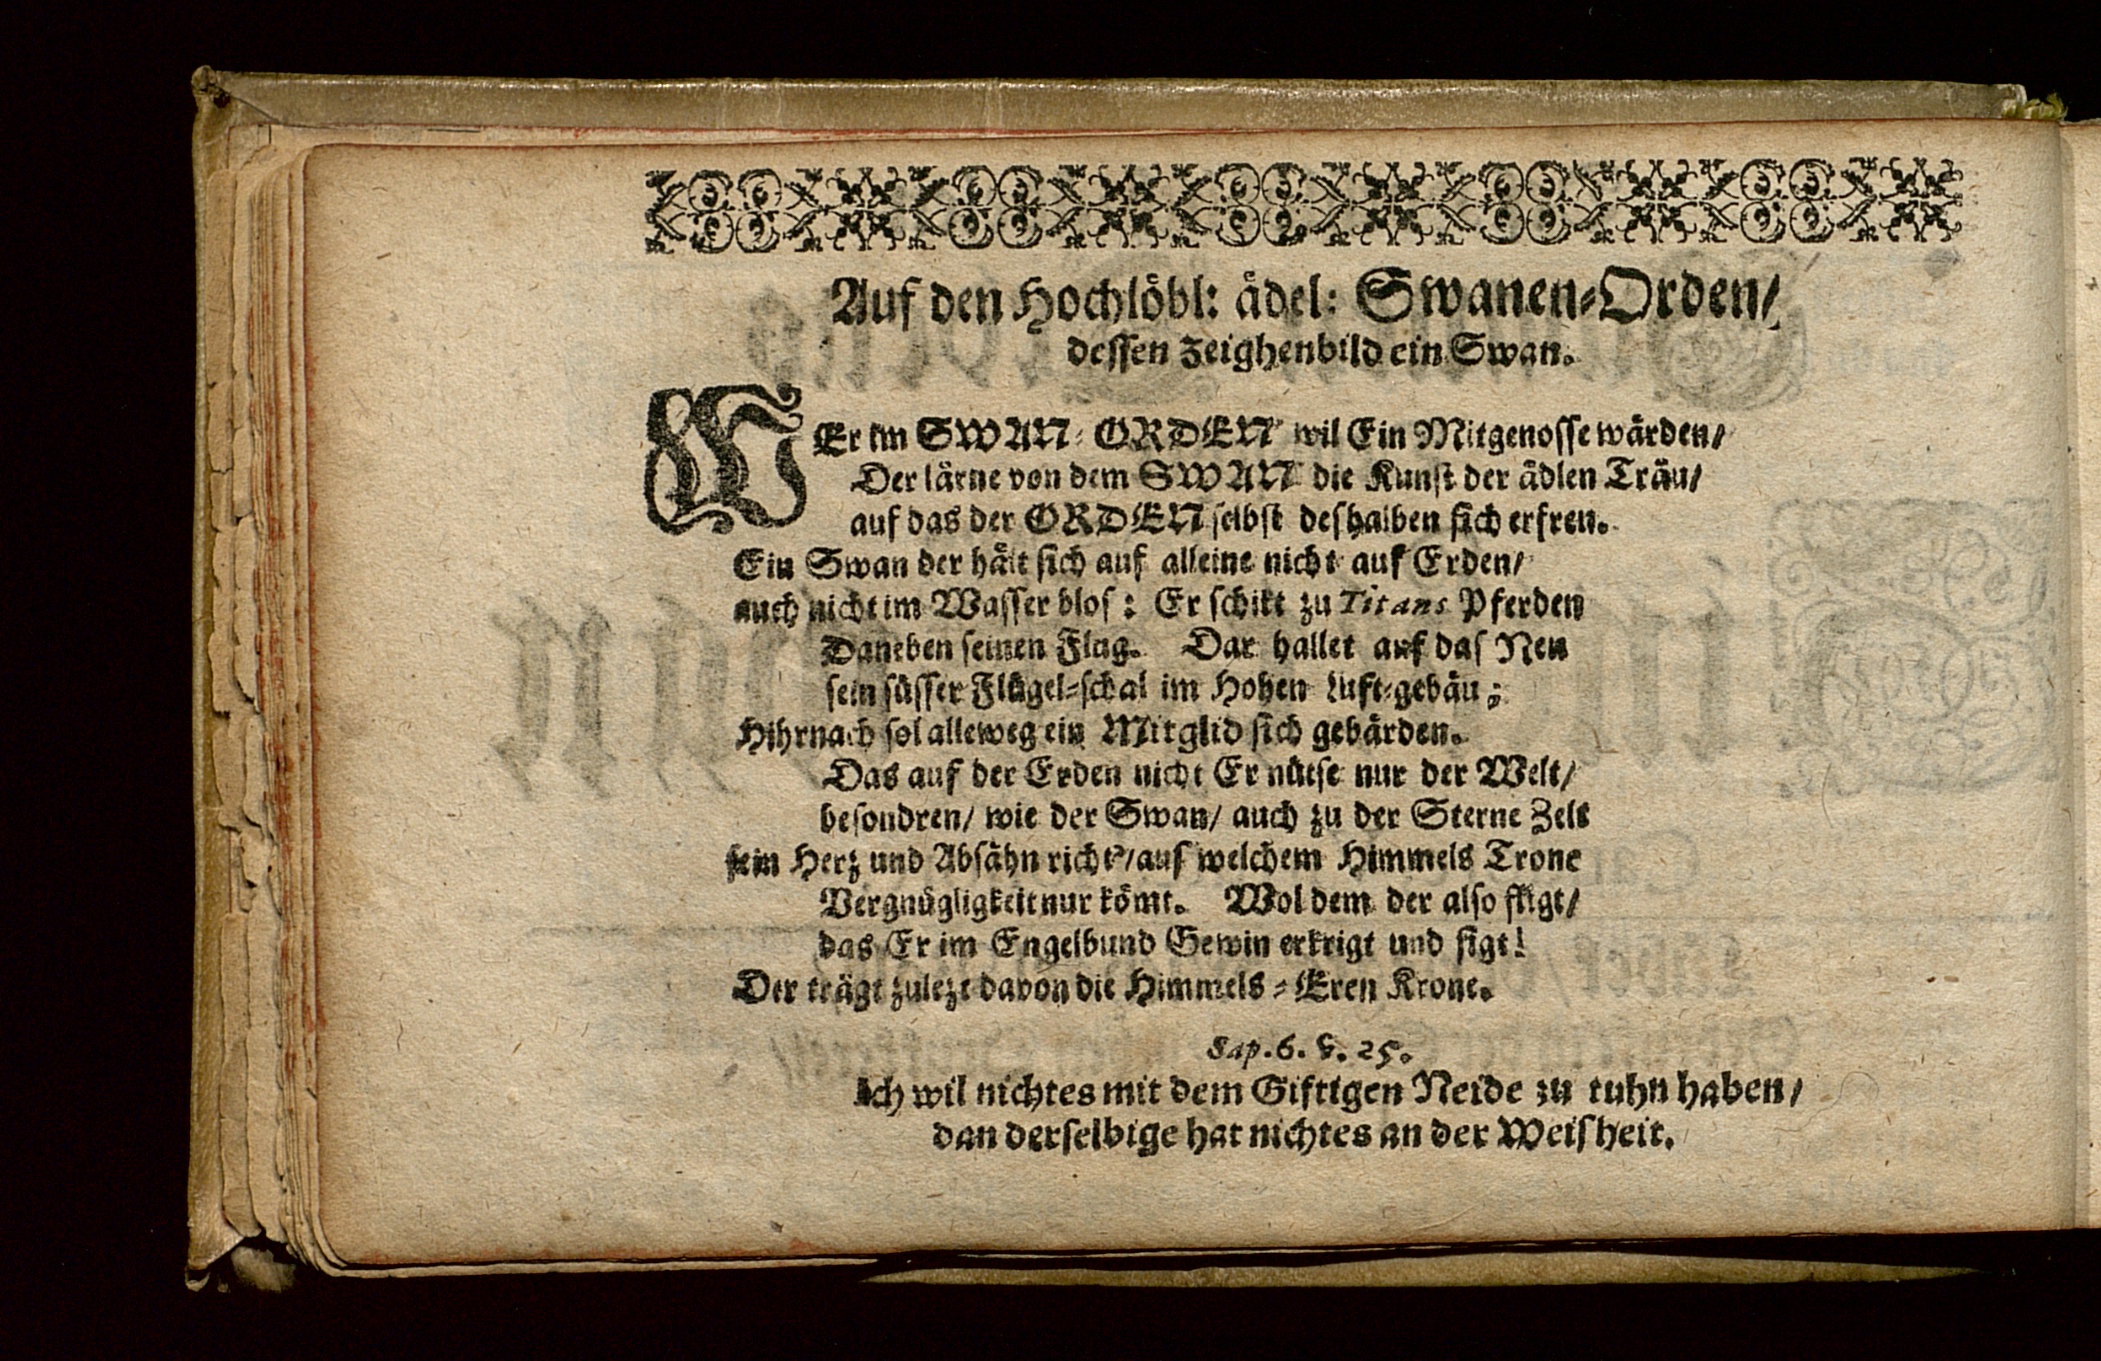 Auf den Hochlöbl: ädel: Swanen-Orden/
dessen zeighenbild ein Swan.
WEr im SWAN-ORDEN wil Ein Mitgenosse wärden/
Der lärne von dem SWAN die Kunst der ädlen Träu/
auf das der ORDEN selbst deshalben sich erfreu.
Ein Swan der hält sich auf alleine nicht auf Erden/
auch nicht im Wasser blos: Er schikt zu Titans Pferden
Daneben seinen Flug. Dar hallet auf das Neu
sein süsser Flügel-schal im Hohen Luft-gebäu;
Hihrnach sol alleweg ein Mitglid sich gebärden.
Das auf der Erden nicht Er nütse nur der Welt/
besondren/ wie der Swan/ auch zu der Sterne Zelt
sein Herz und Absähn richt'/ auf welchem Himmels Trone
Vergnügligkeit nur kömt. Wol dem der also fligt/
das Er im Engelbund Gewin erkrigt und sigt!
Der trägt zulezt davon die Himmels-Eren Krone.
Sap. 6. §. 25.
Ich wil nichtes mit dem Giftigen Neide zu tuhn haben/
dan derselbige hat nichtes an der Weisheit.